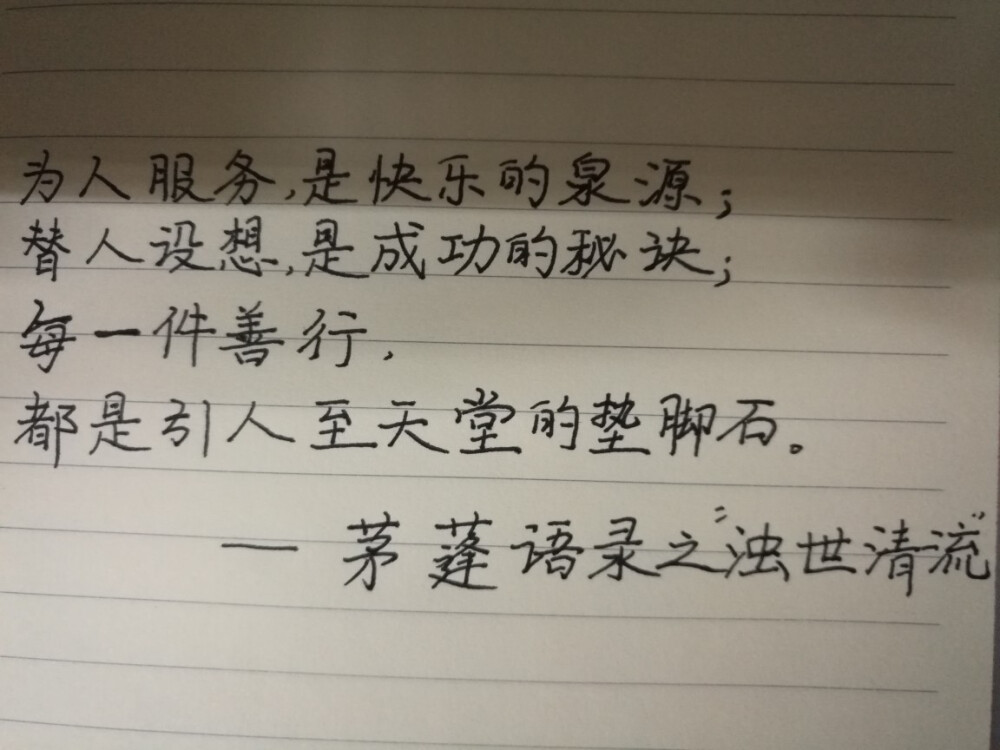 为人服务,是快乐的泉源;
替人设想,是成功的秘诀;
每一件善行,
都是引人至天堂的垫脚石。
— 茅蓬语录之“浊世清流”